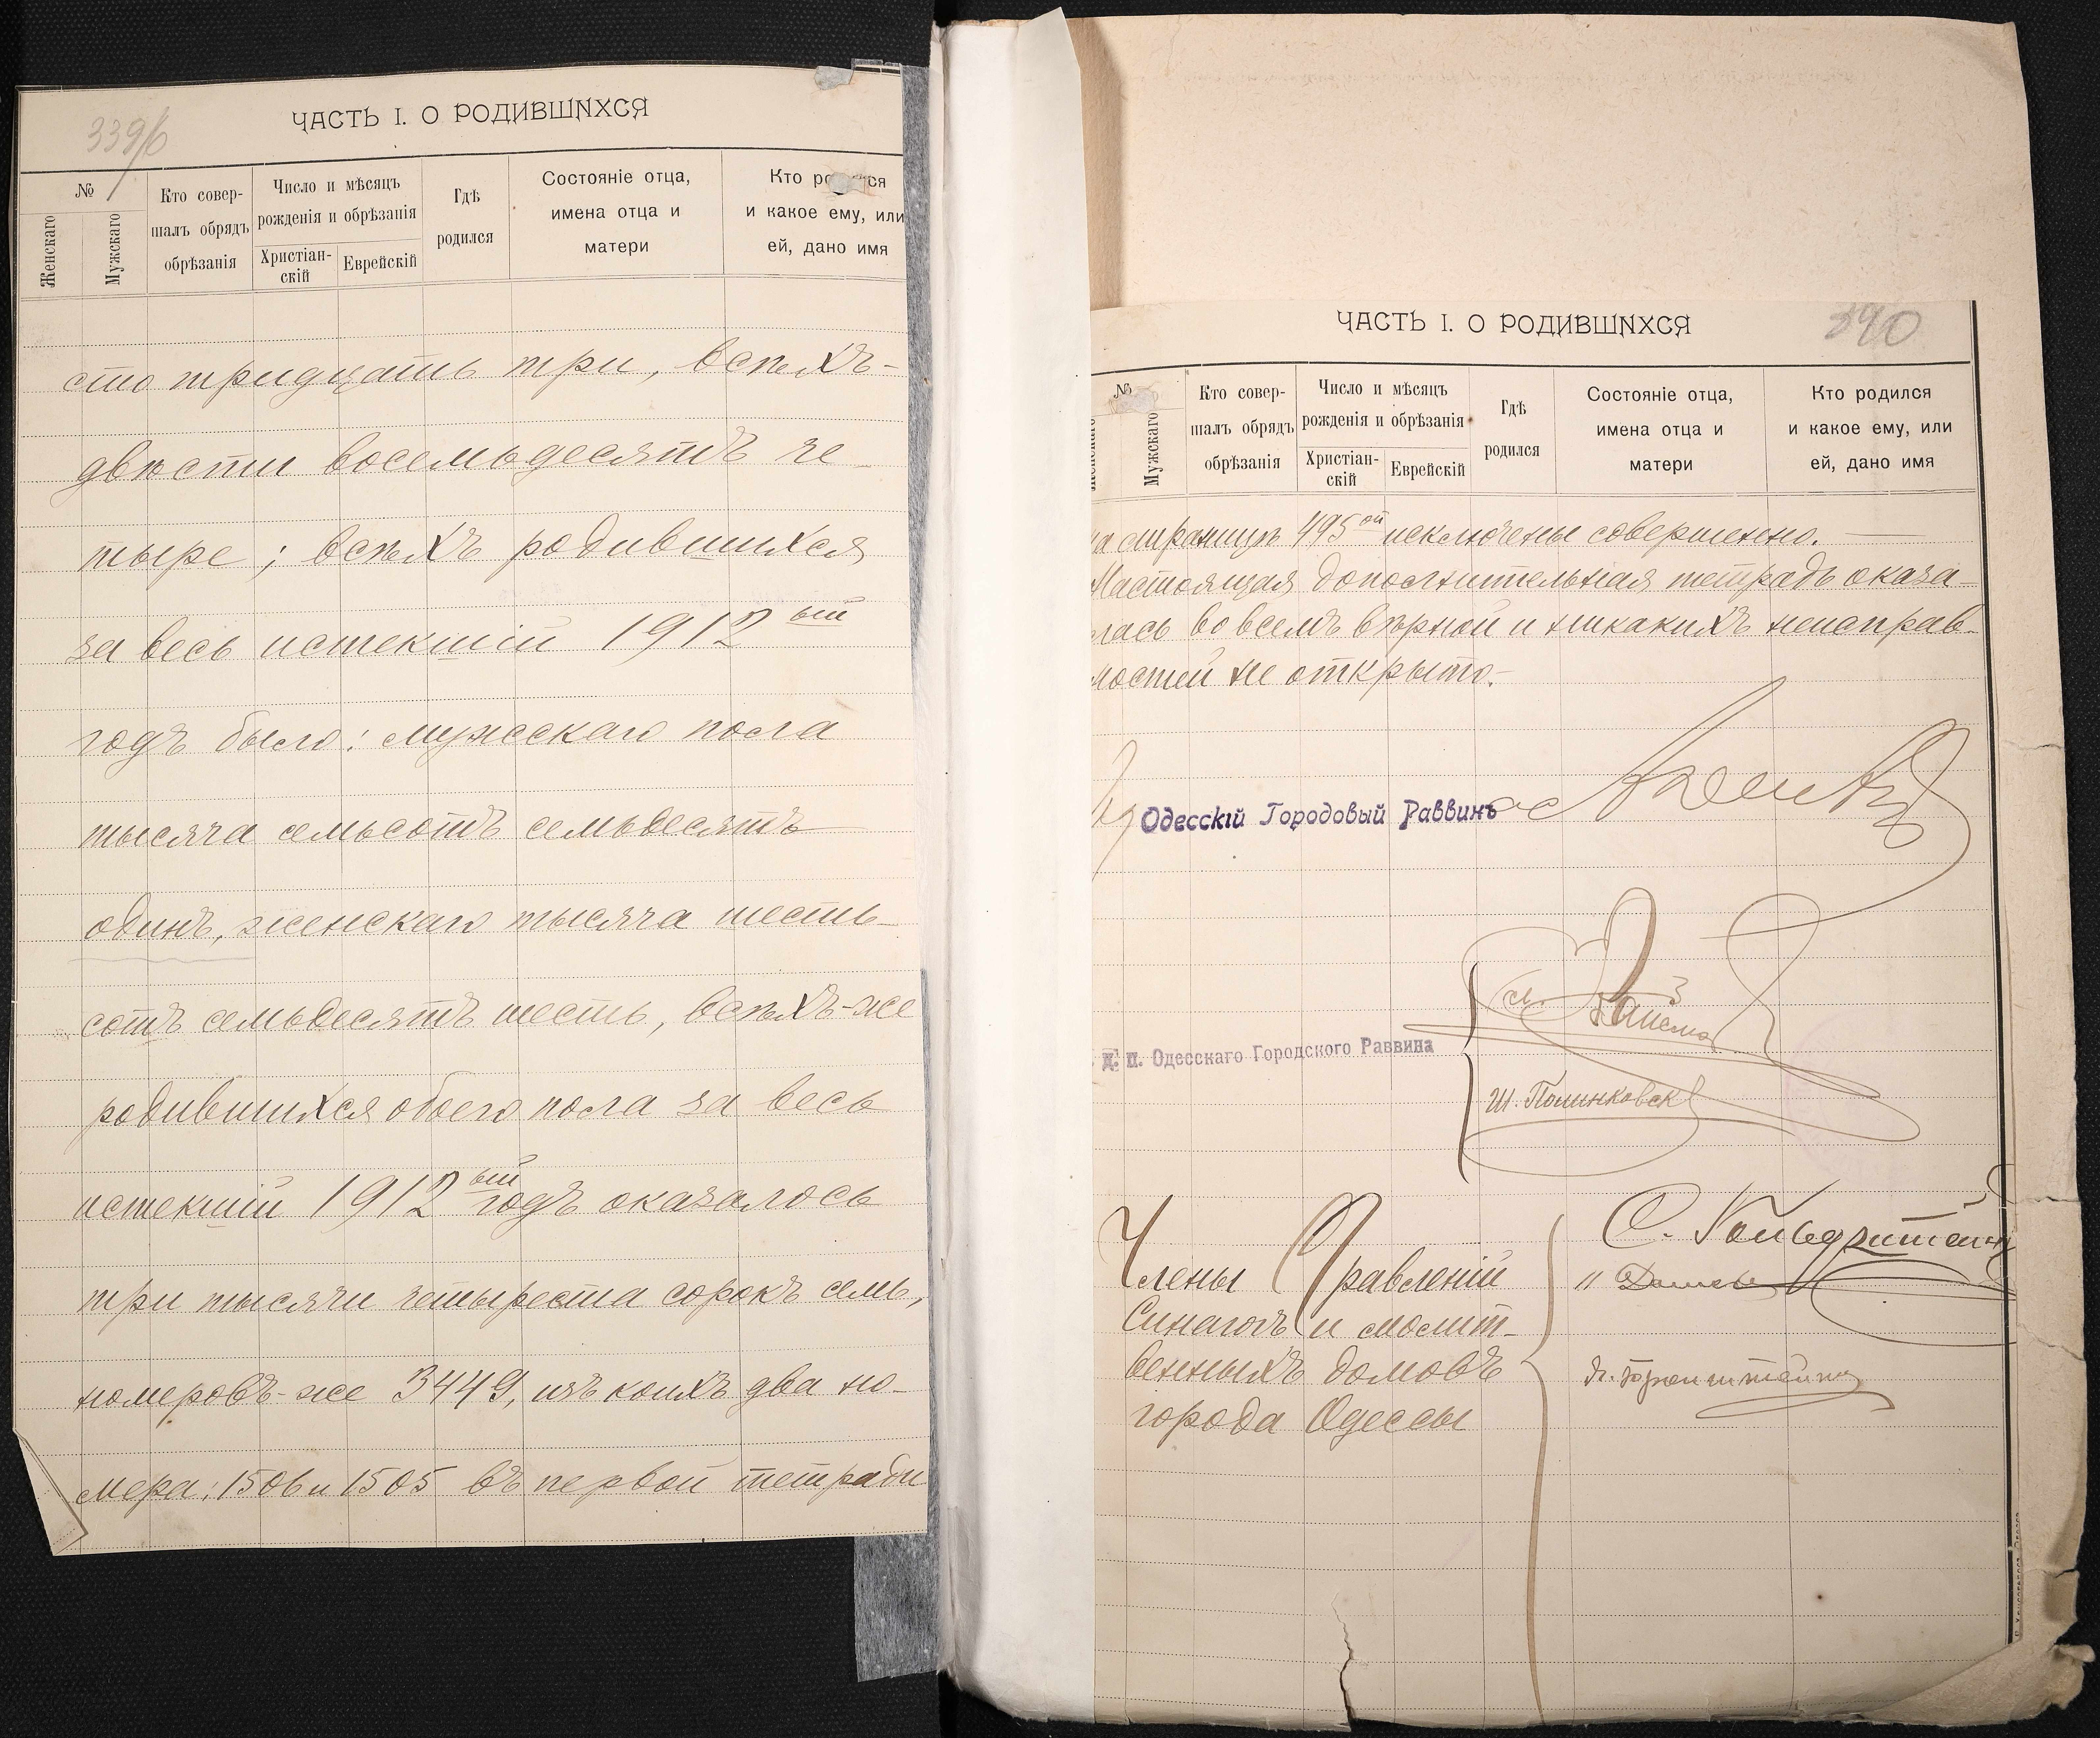 339/б
ЧАСТЬ I. О РОДИВШИХСЯ
№
Женскаго
Мужскаго
Кто совер-
шалъ обрядъ
обрѣзанія
Число и мѣсяцъ
рожденія и обрѣзанія
Христіан-
скій
Еврейскій
Гдѣ
родился
Состояніе отца,
имена отца и
матери
Кто
и какое ему, или
ей, дано имя
сто тридцать три, всѣхъ-
двѣсти восемьдесятъ че-
тыре; всѣхъ родившихся
за весь истекшій 1912ый
годъ было: мужскаго пола
тысяча семьсотъ семьдесятъ
одинъ, женскаго тысяча шесть-
сотъ семьдесятъ шесть, всѣхъ-же
родившихся обоего пола за весь
истекшій 1912ый годъ оказалось
три тысячи четыреста сорокъ семь,
номеровъ-же 3449, изъ коихъ два но-
мера: 1506 и 1505 въ первой тетради
390
ЧАСТЬ I. О РОДИВШИХСЯ
№
Мужскаго
Кто совер-
шалъ обрядъ
обрѣзанія
Число и мѣсяцъ
рожденія и обрѣзанія
Христіан-
скій
Еврейскій
Гдѣ
родился
Состояніе отца,
имена отца и
матери
Кто родился
и какое ему, или
ей, дано имя
на страницѣ 495ой исключены совершенно.
Настоящая дополнительная тетрадь оказа-
лась во всемъ вѣрной и никакихъ неисправ-
ностей не открыто.-
Одесскій Городовый Раввинъ
д. п. Одесскаго Городского Раввина
Ш. Полинковск
С. Гольдштейн
Члены Правленій
Синагогъ и молит-
венныхъ домовъ
города Одессы
Бронштейнъ